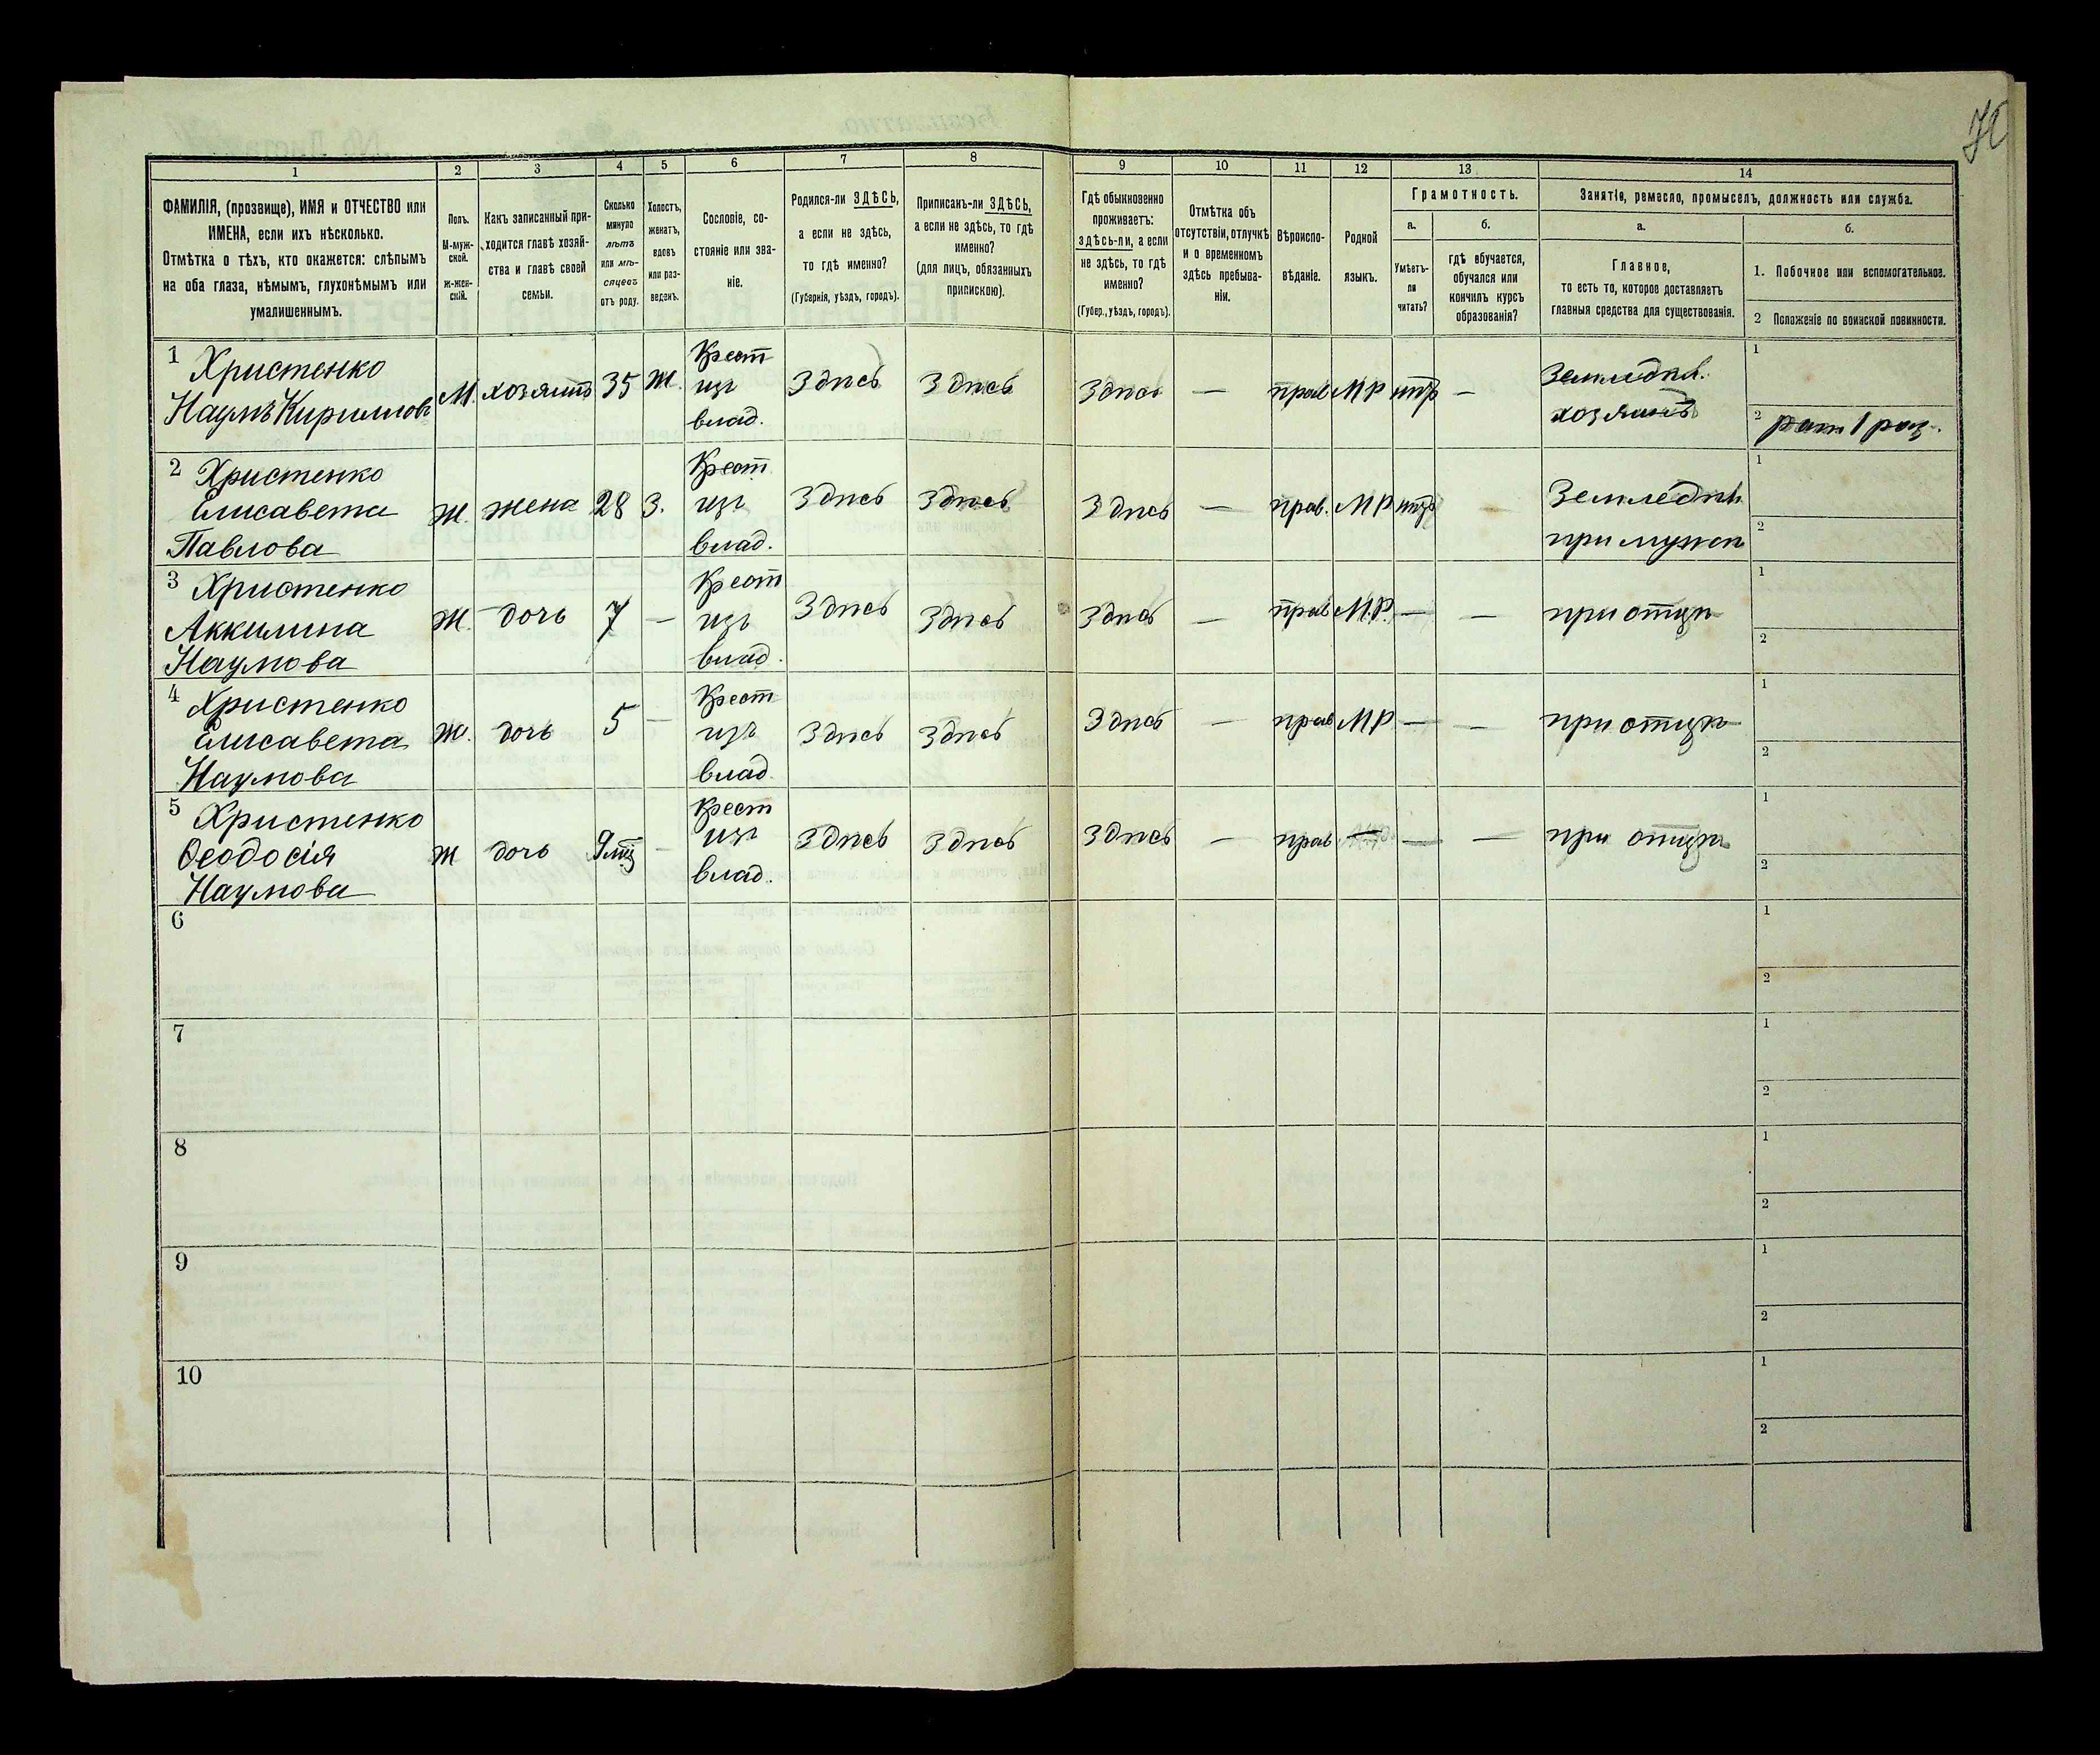 70
1 2 3 4 5 6 7 8 9 10 11 12 13 14
ФАМИЛІЯ, (прозвище), ИМЯ и ОТЧЕСТВО или
ИМЕНА, если ихъ нѣсколько.
Отмѣтка о тѣхъ, кто окажется: слѣпымъ
на оба глаза, нѣмымъ, глухонѣмымъ или
умалишеннымъ.
Полъ.
М-муж-
ской.
Ж-жен-
скій.
Какъ записанный при-
ходится главѣ хозяй-
ства и главѣ своей
семьи.
Сколько
минуло
лѣтъ
или мѣ-
сяцевъ
отъ роду.
Холостъ,
женатъ,
вдовъ
или раз-
веденъ.
Сословіе, со-
стояніе или зва-
ніе.
Родился-ли ЗДѢСЬ,
а если не здѣсь,
то гдѣ именно?
(Губернія, уѣздъ, городъ).
Приписанъ-ли ЗДѢСЬ,
а если не здѣсь, то гдѣ
именно?
(для лицъ, обязанныхъ
припискою).
Гдѣ обыкновенно
проживаетъ:
здѣсь-ли, а если
не здѣсь, то гдѣ
именно?
(Губер., уѣздъ, городъ).
Отмѣтка объ
отсутствіи, отлучкѣ
и о временномъ
здѣсь пребыва-
ніи.
Вѣроиспо-
вѣданіе.
Родной
языкъ.
Грамотность.
а.
Умѣетъ-
ли
читать?
б.
гдѣ обучается,
обучался или
кончилъ курсъ
образованія?
Занятіе, ремесло, промыселъ, должность или служба.
а.
Главное,
то есть то, которое доставляетъ
главныя средства для существованія.
б.
1. Побочное или вспомогательное.
2 Положеніе по воинской повинности.
1 Христенко Крест Земледѣл. 1
Наумъ Кирилловъ М. хозяинъ 35 Ж. изъ Здѣсь Здѣсь Здѣсь — прав МР нѣтъ — хозяинъ
влад. 2 рат 1 раз.
2 Христенко Крест 1
Елисавета Ж. жена 28 З. изъ Здѣсь Здѣсь Здѣсь — прав. МР нѣтъ — Земледѣл
Павлова влад. при мужѣ 2
3 Христенко Крест 1
Аккилина Ж. дочь 7 — изъ Здѣсь Здѣсь Здѣсь — прав М.Р. — — при отцѣ
Наумова влад. 2
4 Христенко Крест 1
Елисавета Ж. дочь 5 — изъ Здѣсь Здѣсь Здѣсь — прав МР — — при отцѣ
Наумова влад 2
5 Христенко Крест 1
Ѳеодосія Ж дочь 9 мѣ — изъ Здѣсь Здѣсь Здѣсь — прав — — — при отцѣ
Наумова влад. 2
6 1
2
7 1
2
8 1
2
9 1
2
10 1
2